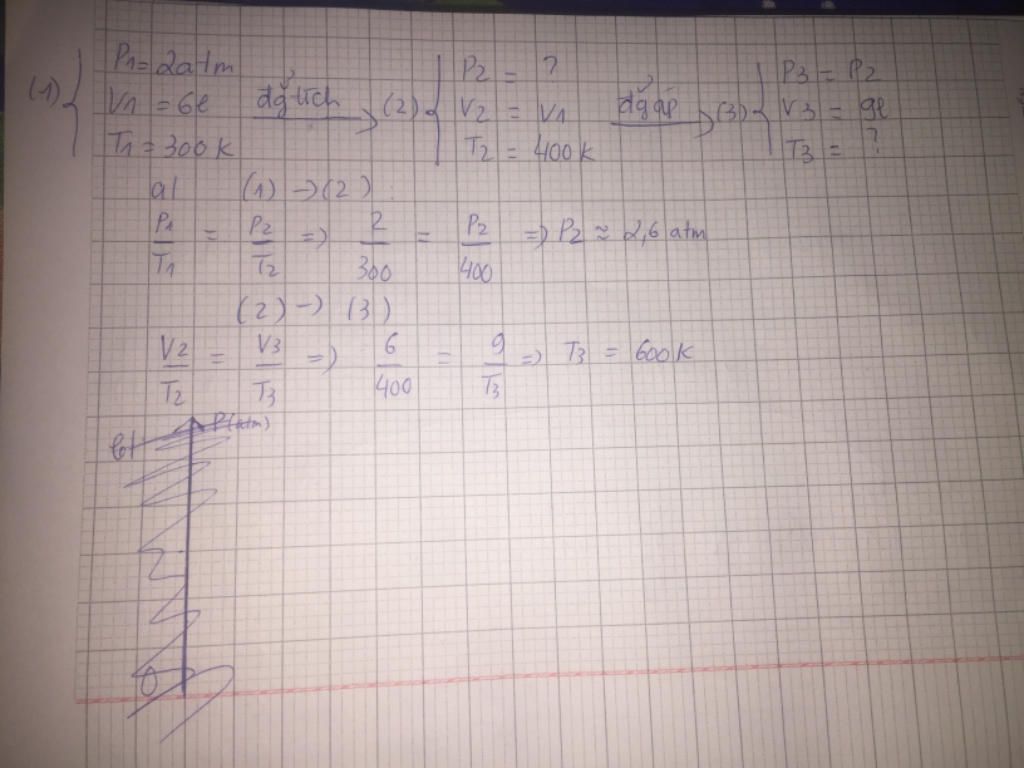 (1) { P1 = 2atm
V1 = 6l
T1 = 300K
đẳg tích
(2) { P2 = ?
V2 = V1
T2 = 400K
đẳg áp
(3) { P3 = P2
V3 = 9l
T3 = ?
a/ (1) → (2) :
P1/T1 = P2/T2 => 2/300 = P2/400 => P2 ≈ 2,6 atm
(2) → (3)
V2/T2 = V3/T3 => 6/400 = 9/T3 => T3 = 600K
b/ P(atm)
0